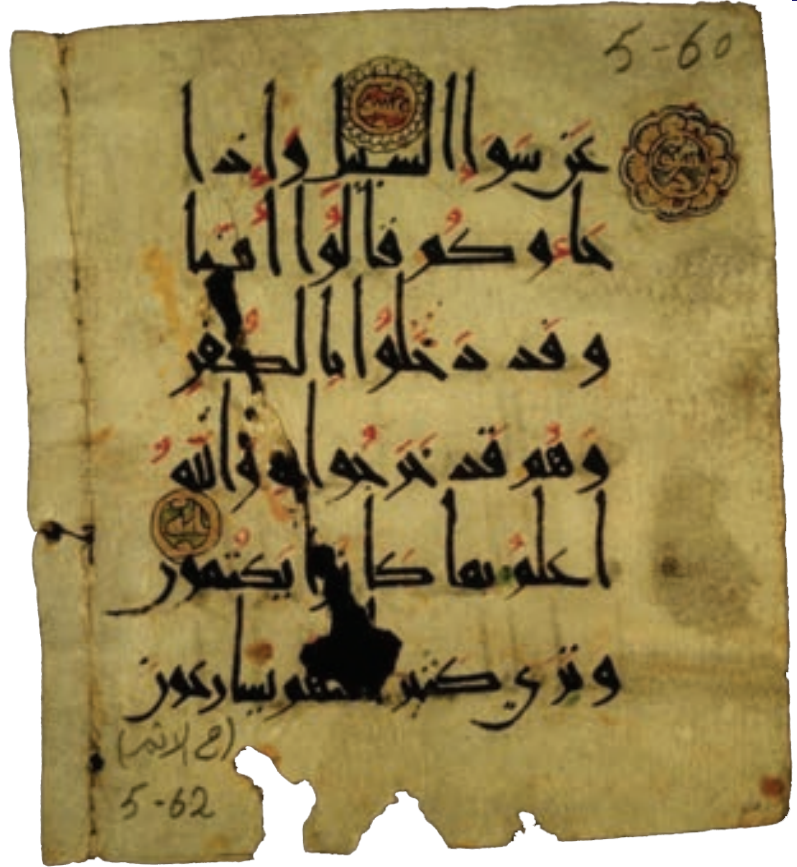 5-60
عَن سَوَاءِ السبيل وَإِذا
جَاءُوكُم قَالُوا أَمَنَّا
وَقَد دَخَلُوا بِالكُفرِ
وَهُم قَد خَرَجُوا بِهِ وَاللهُ
اعلمُ بما كانُوا يَكتُمون
وَتَرَى كثيرا منهم يسارعون
(في الاثم)
5-62